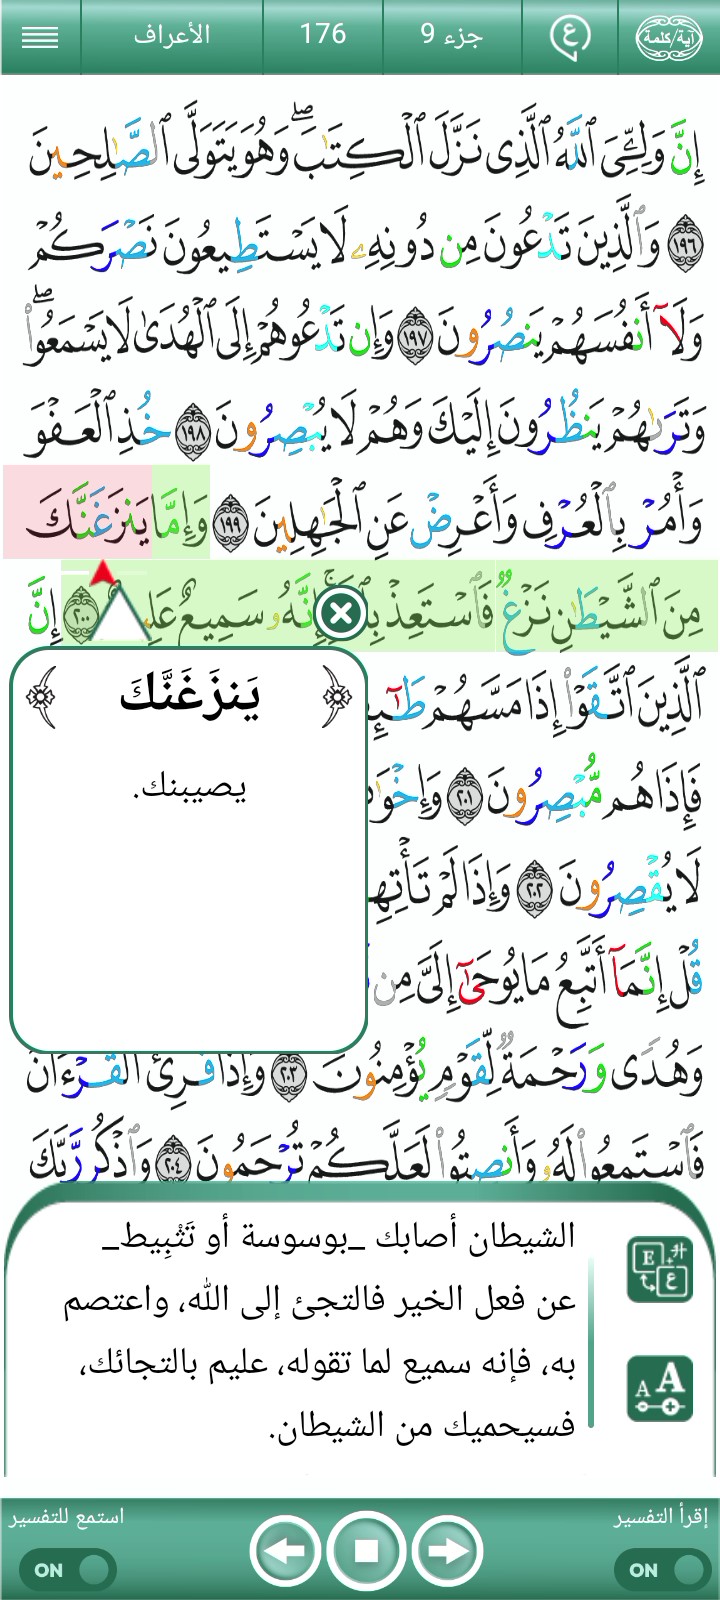 آية/كلمة
ع
جزء 9
176
الأعراف
إِنَّ وَلِـِّۧيَ ٱللَّهُ ٱلَّذِى نَزَّلَ ٱلْكِتَـٰبَ ۖ وَهُوَ يَتَوَلَّى ٱلصَّـٰلِحِينَ
١٩٦ وَٱلَّذِينَ تَدْعُونَ مِن دُونِهِۦ لَا يَسْتَطِيعُونَ نَصْرَكُمْ
وَلَآ أَنفُسَهُمْ يَنصُرُونَ ١٩٧ وَإِن تَدْعُوهُمْ إِلَى ٱلْهُدَىٰ لَا يَسْمَعُوا۟ ۖ
وَتَرَىٰهُمْ يَنظُرُونَ إِلَيْكَ وَهُمْ لَا يُبْصِرُونَ ١٩٨ خُذِ ٱلْعَفْوَ
وَأْمُرْ بِٱلْعُرْفِ وَأَعْرِضْ عَنِ ٱلْجَـٰهِلِينَ ١٩٩ وَإِمَّا يَنزَغَنَّكَ
مِنَ ٱلشَّيْطَـٰنِ نَزْغٌ فَٱسْتَعِذْ إِنَّهُۥ سَمِيعٌ ٢٠٠ إِنَّ
ٱلَّذِينَ ٱتَّقَوْا۟ إِذَا مَسَّهُمْ
فَإِذَا هُم مُّبْصِرُونَ ٢٠١
لَا يُقْصِرُونَ ٢٠٢ وَإِذَا لَمْ
قُلْ إِنَّمَآ أَتَّبِعُ مَا يُوحَىٰٓ إِلَىَّ مِن
وَهُدًى وَرَحْمَةٌ لِّقَوْمٍ يُؤْمِنُونَ ٢٠٣ وَإِذَا قُرِئَ ٱلْقُرْءَانُ
فَٱسْتَمِعُوا۟ لَهُۥ وَأَنصِتُوا۟ لَعَلَّكُمْ تُرْحَمُونَ ٢٠٤ وَٱذْكُر رَّبَّكَ
يَنزَغَنَّكَ
يصيبنك.
الشيطان أصابك _بوسوسة أو تَثْبِيط_
عن فعل الخير فالتجئ إلى الله، واعتصم
به، فإنه سميع لما تقوله، عليم بالتجائك،
فسيحميك من الشيطان.
E
ع
A A
إقرأ التفسير
ON
استمع للتفسير
ON